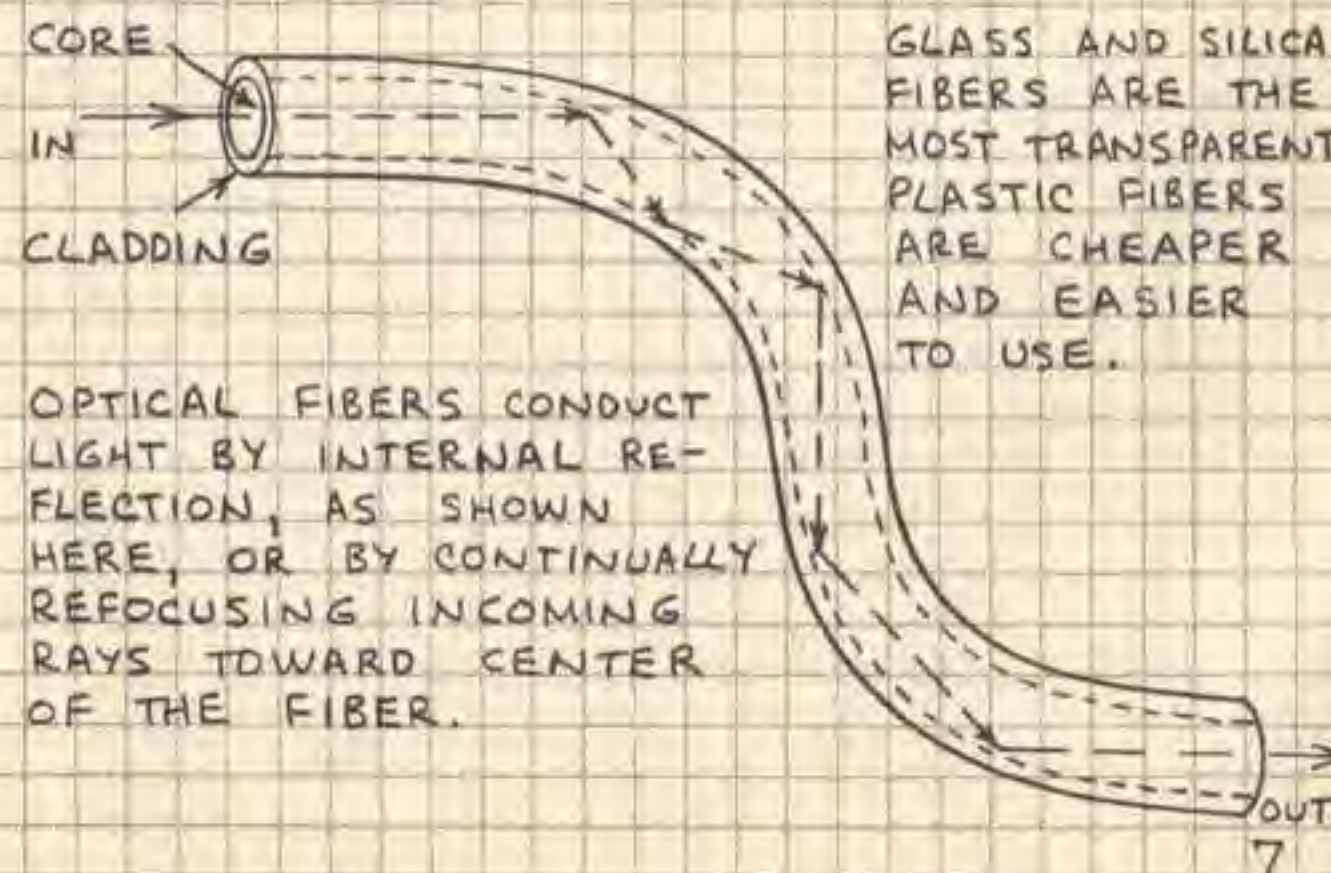 CORE
IN
CLADDING
GLASS AND SILICA
FIBERS ARE THE
MOST TRANSPARENT
PLASTIC FIBERS
ARE CHEAPER
AND EASIER
TO USE.
OPTICAL FIBERS CONDUCT
LIGHT BY INTERNAL RE-
FLECTION, AS SHOWN
HERE, OR BY CONTINUALLY
REFOCUSING INCOMING
RAYS TOWARD CENTER
OF THE FIBER.
OUT
7